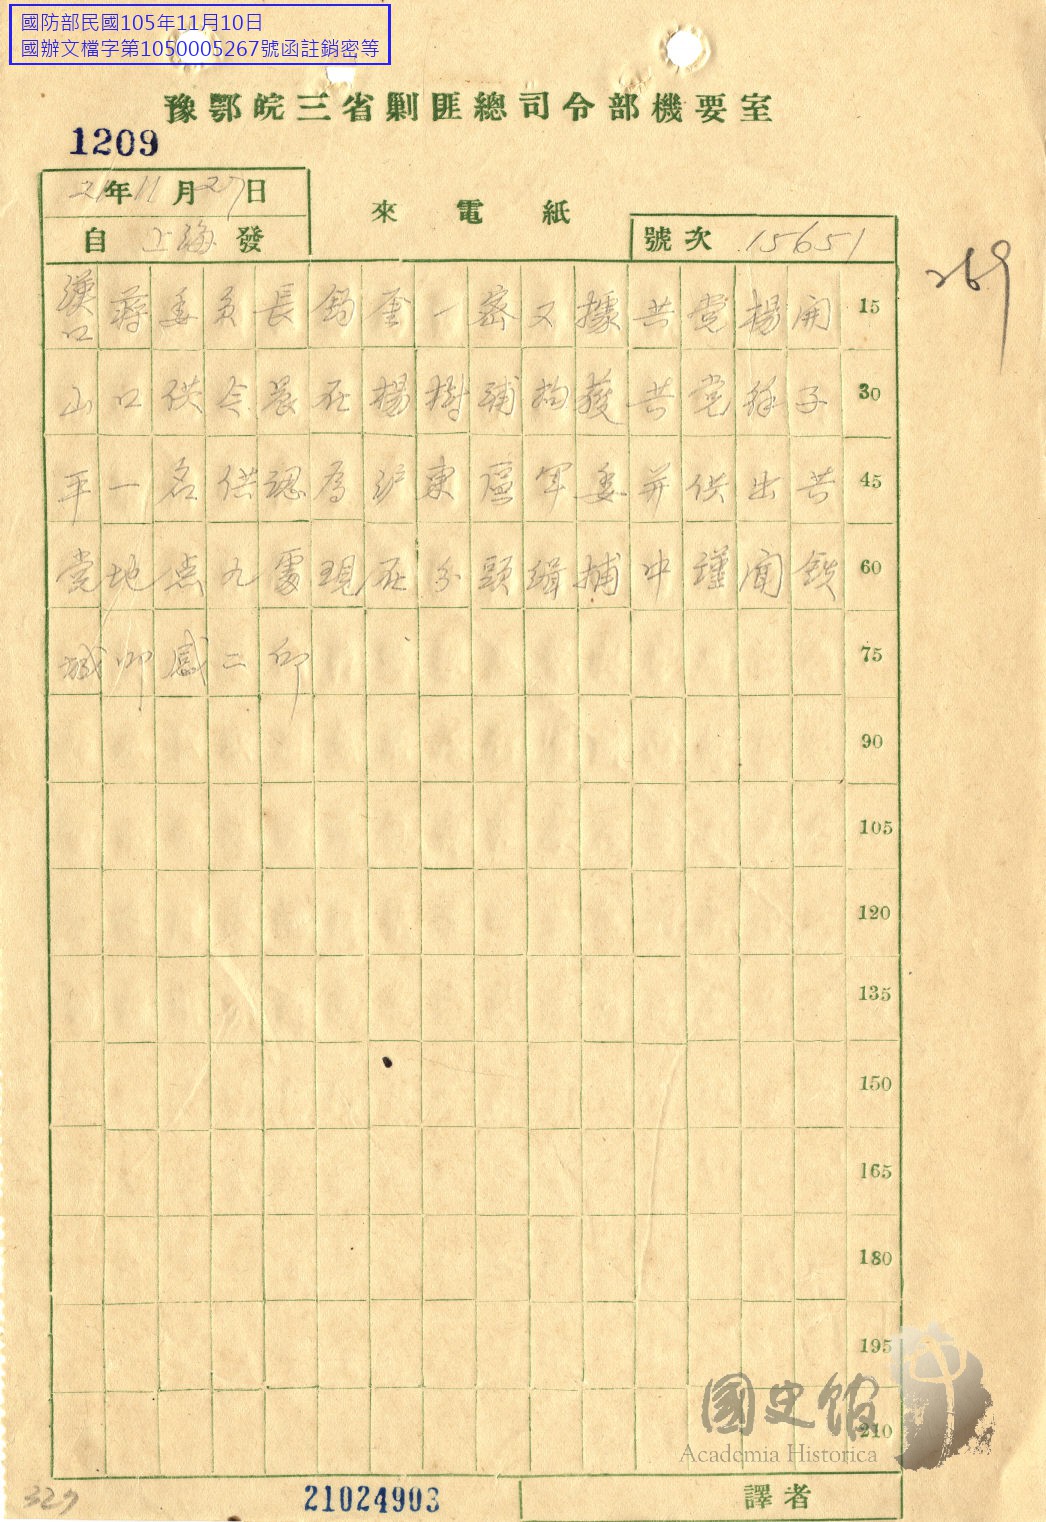 國防部民國105年11月10日
國辦文檔字第1050005267號函註銷密等
豫鄂皖三省剿匪總司令部機要室
1209
21年11月27日
來電紙
自上海發
號次 15651
269
漢口蔣委員長鈞鑒一密又據共党楊開 15
山口供今晨在楊樹浦拘獲共党徐子 30
平一名供認為沪東區軍委并供出共 45
党地点九處現在分頭緝捕中謹聞鉄 60
城叩感二印 75
90
105
120
135
150
165
180
195
210
國史館
Academia Historica
327
21024903
譯者